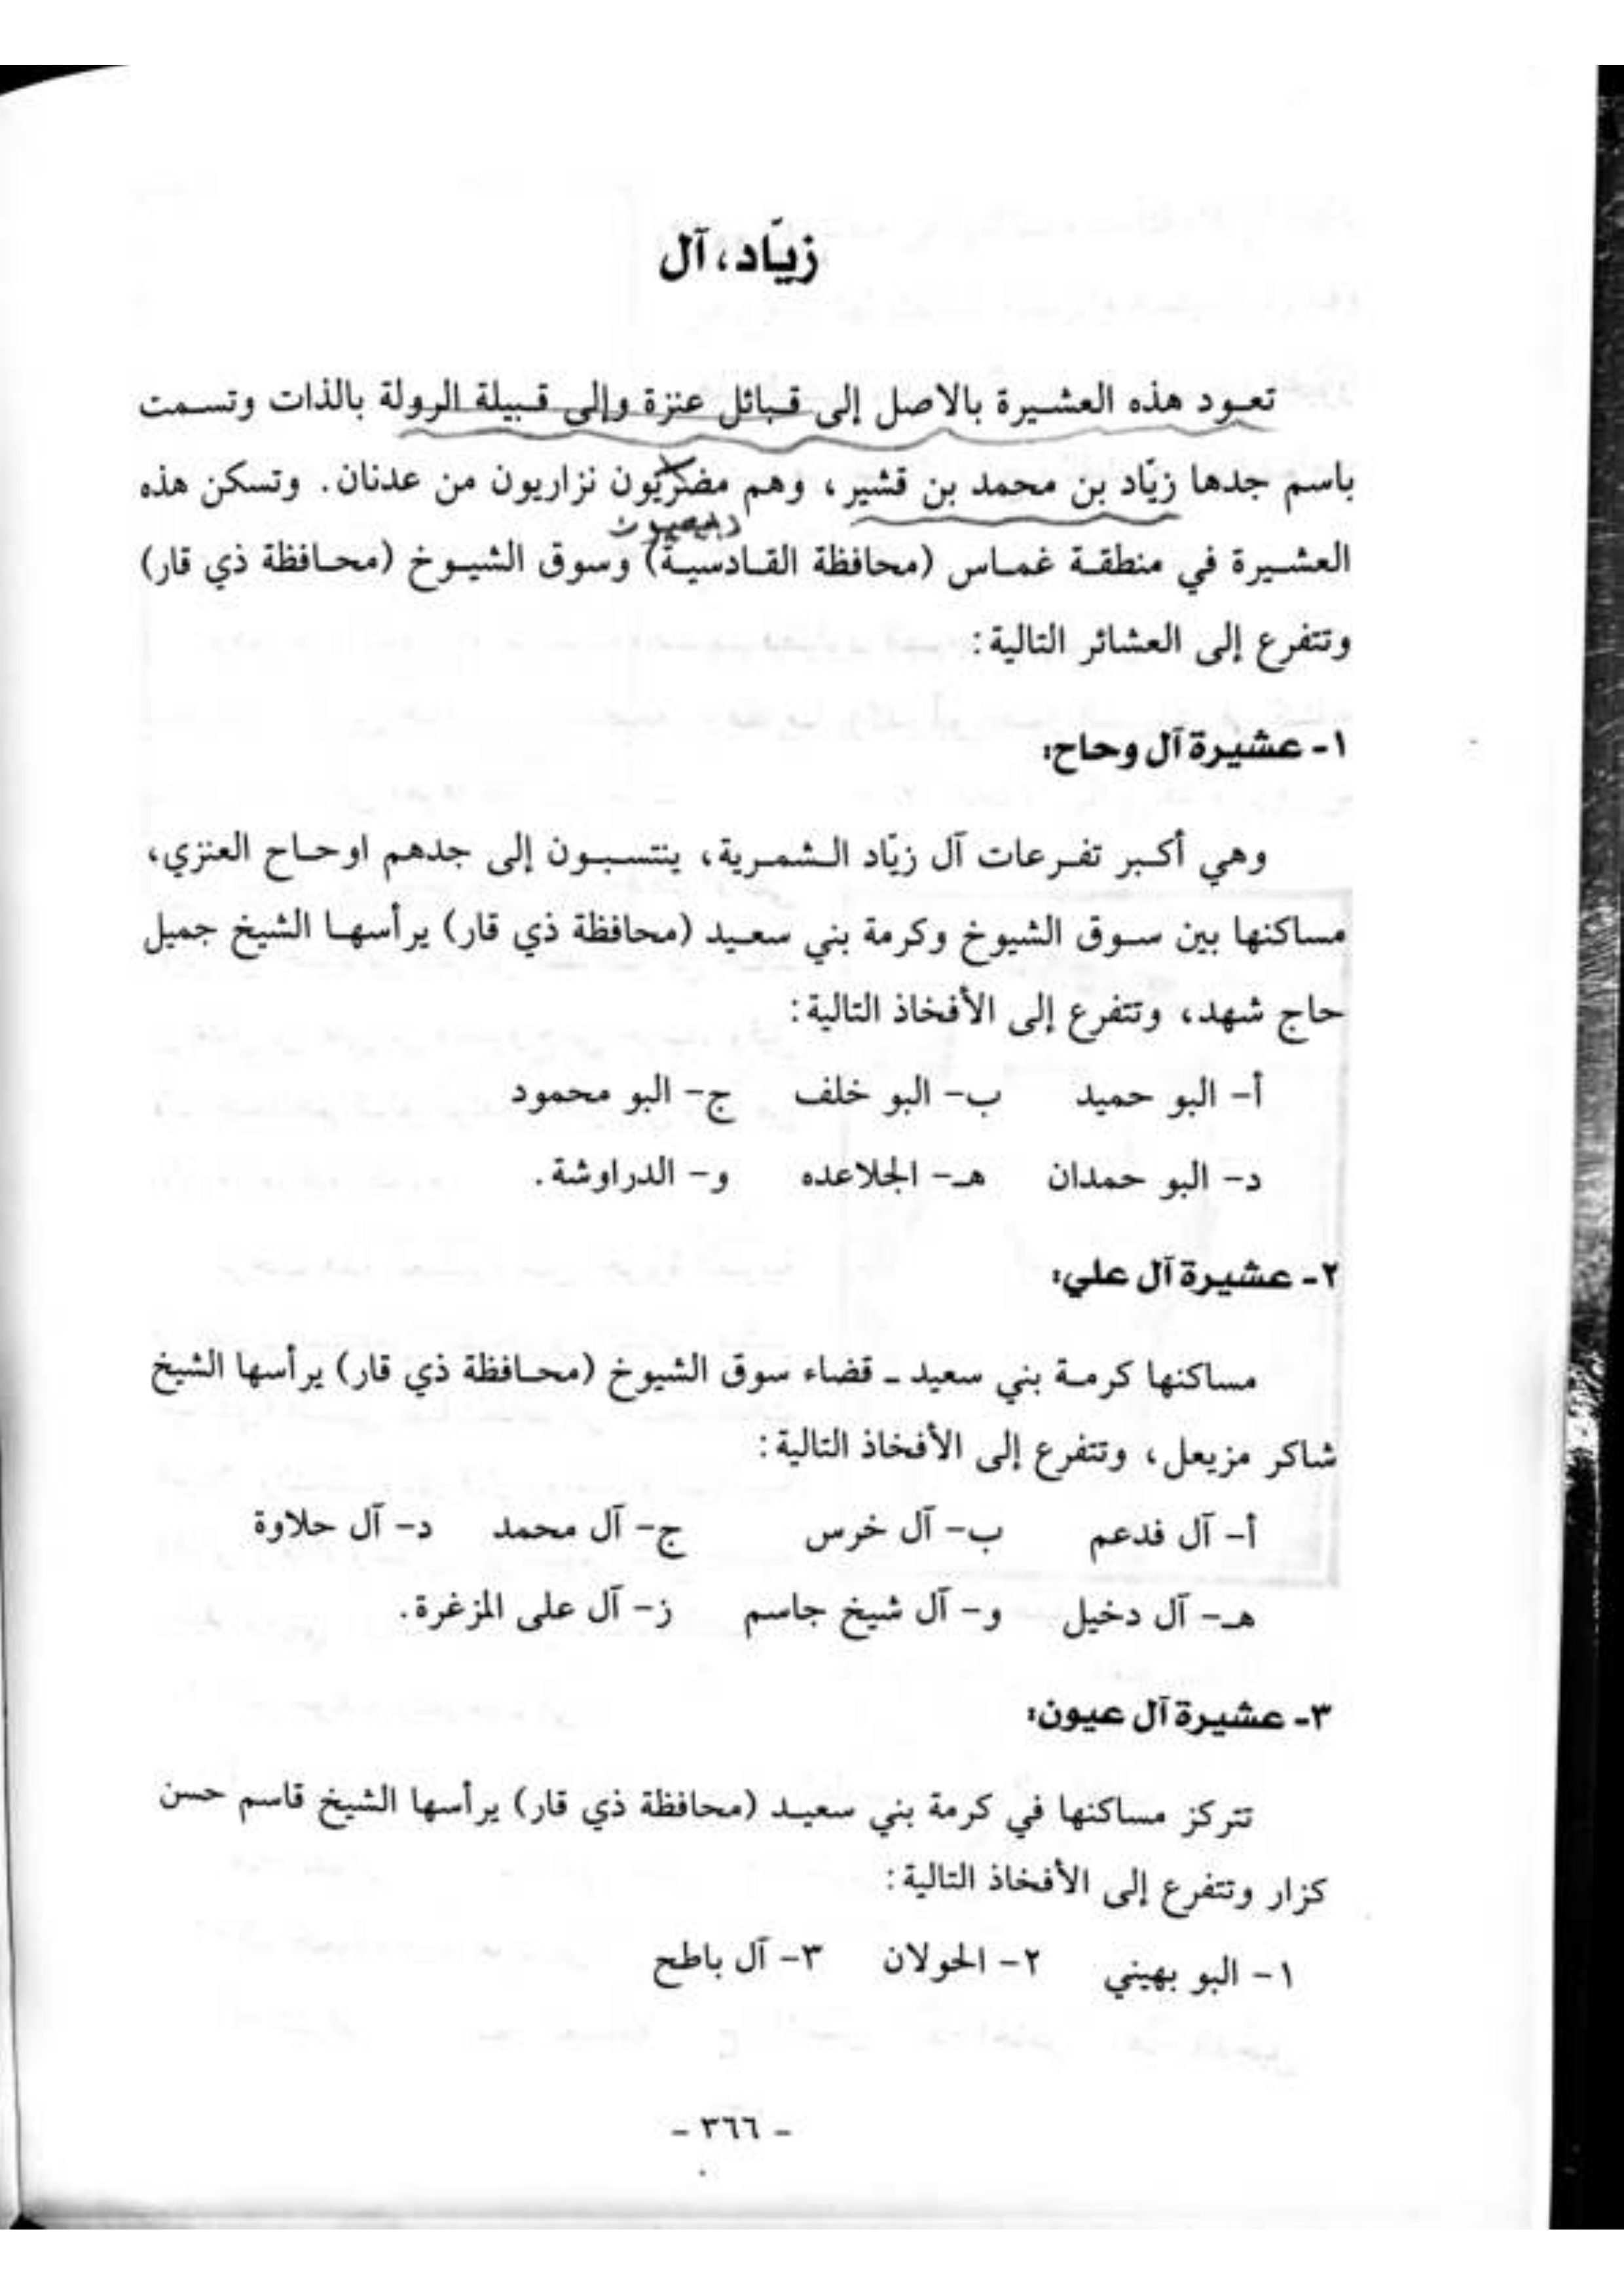 زيّاد، آل
تعود هذه العشيرة بالاصل إلى قبائل عنزة وإلى قبيلة الرولة بالذات وتسمت
باسم جدها زيّاد بن محمد بن قشير، وهم مضريّون نزاريون من عدنان. وتسكن هذه
العشيرة في منطقة غماس (محافظة القادسية) وسوق الشيوخ (محافظة ذي قار)
وتتفرع إلى العشائر التالية:
١- عشيرة آل وحاح:
وهي أكبر تفرعات آل زيّاد الشمرية، ينتسبون إلى جدهم اوحاح العنزي،
مساكنها بين سوق الشيوخ وكرمة بني سعيد (محافظة ذي قار) يرأسها الشيخ جميل
حاج شهد، وتتفرع إلى الأفخاذ التالية:
أ- البو حميد ب- البو خلف ج- البو محمود
د- البو حمدان هـ- الجلاعده و- الدراوشة.
٢- عشيرة آل علي:
مساكنها كرمة بني سعيد - قضاء سوق الشيوخ (محافظة ذي قار) يرأسها الشيخ
شاكر مزيعل، وتتفرع إلى الأفخاذ التالية:
أ- آل فدعم ب- آل خرس ج- آل محمد د- آل حلاوة
هـ- آل دخيل و- آل شيخ جاسم ز- آل على المزغرة.
٣- عشيرة آل عيون:
تتركز مساكنها في كرمة بني سعيد (محافظة ذي قار) يرأسها الشيخ قاسم حسن
كزار وتتفرع إلى الأفخاذ التالية:
١- البو بهيني ٢- الحولان ٣- آل باطح
- ٣٦٦ -